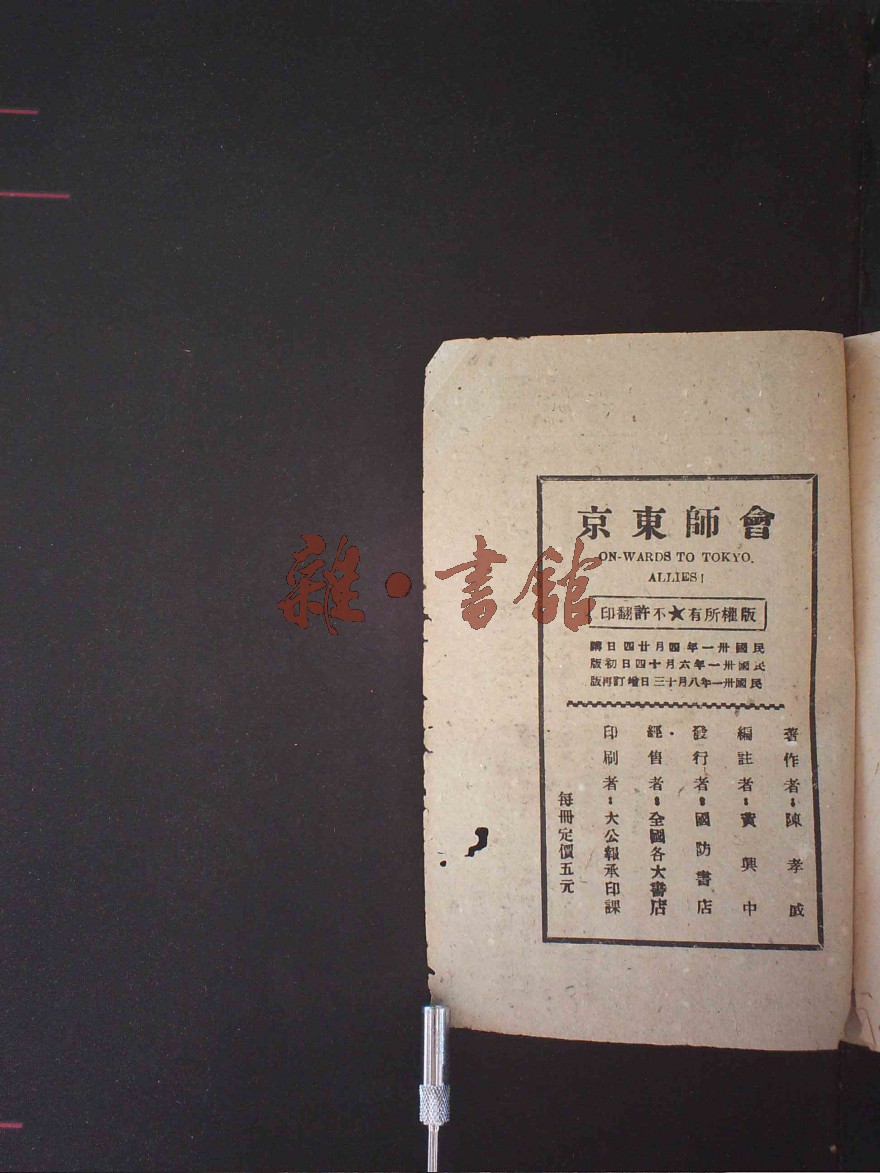 會師東京
ON-WARDS TO TOKYO.
ALLIES!
版權所有★不許翻印
民國卅一年四月廿四日
民國卅一年六月十四日初版
民國卅一年八月十三日增訂再版
著作者：陳孝威
編註者：黃興中
發行者：國防書店
經售者：全國各大書店
印刷者：大公報承印課
每冊定價五元
雜·書館